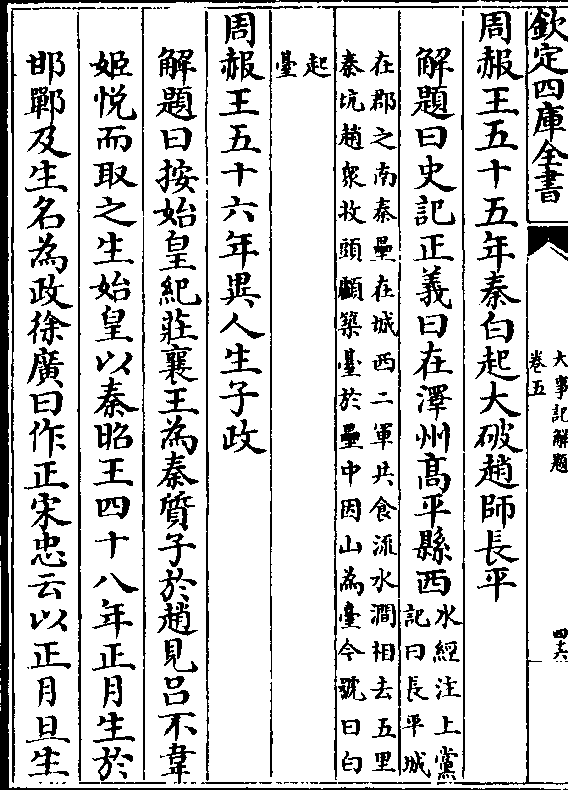 欽定四庫全書
大事記解題
卷五
四十六
周赧王五十五年秦白起大破趙師長平
解題曰史記正義曰在澤州髙平縣西水經注上黨
記曰長平城
在郡之南秦壘在城西二軍共食流水澗相去五里
秦坑趙衆收頭顱築臺於壘中因山為臺今號曰白
起
臺
周赧王五十六年異人生子政
解題曰按始皇紀莊襄王為秦質子於趙見吕不韋
姬悦而取之生始皇以秦昭王四十八年正月生於
邯鄲及生名為政徐廣曰作正宋忠云以正月旦生